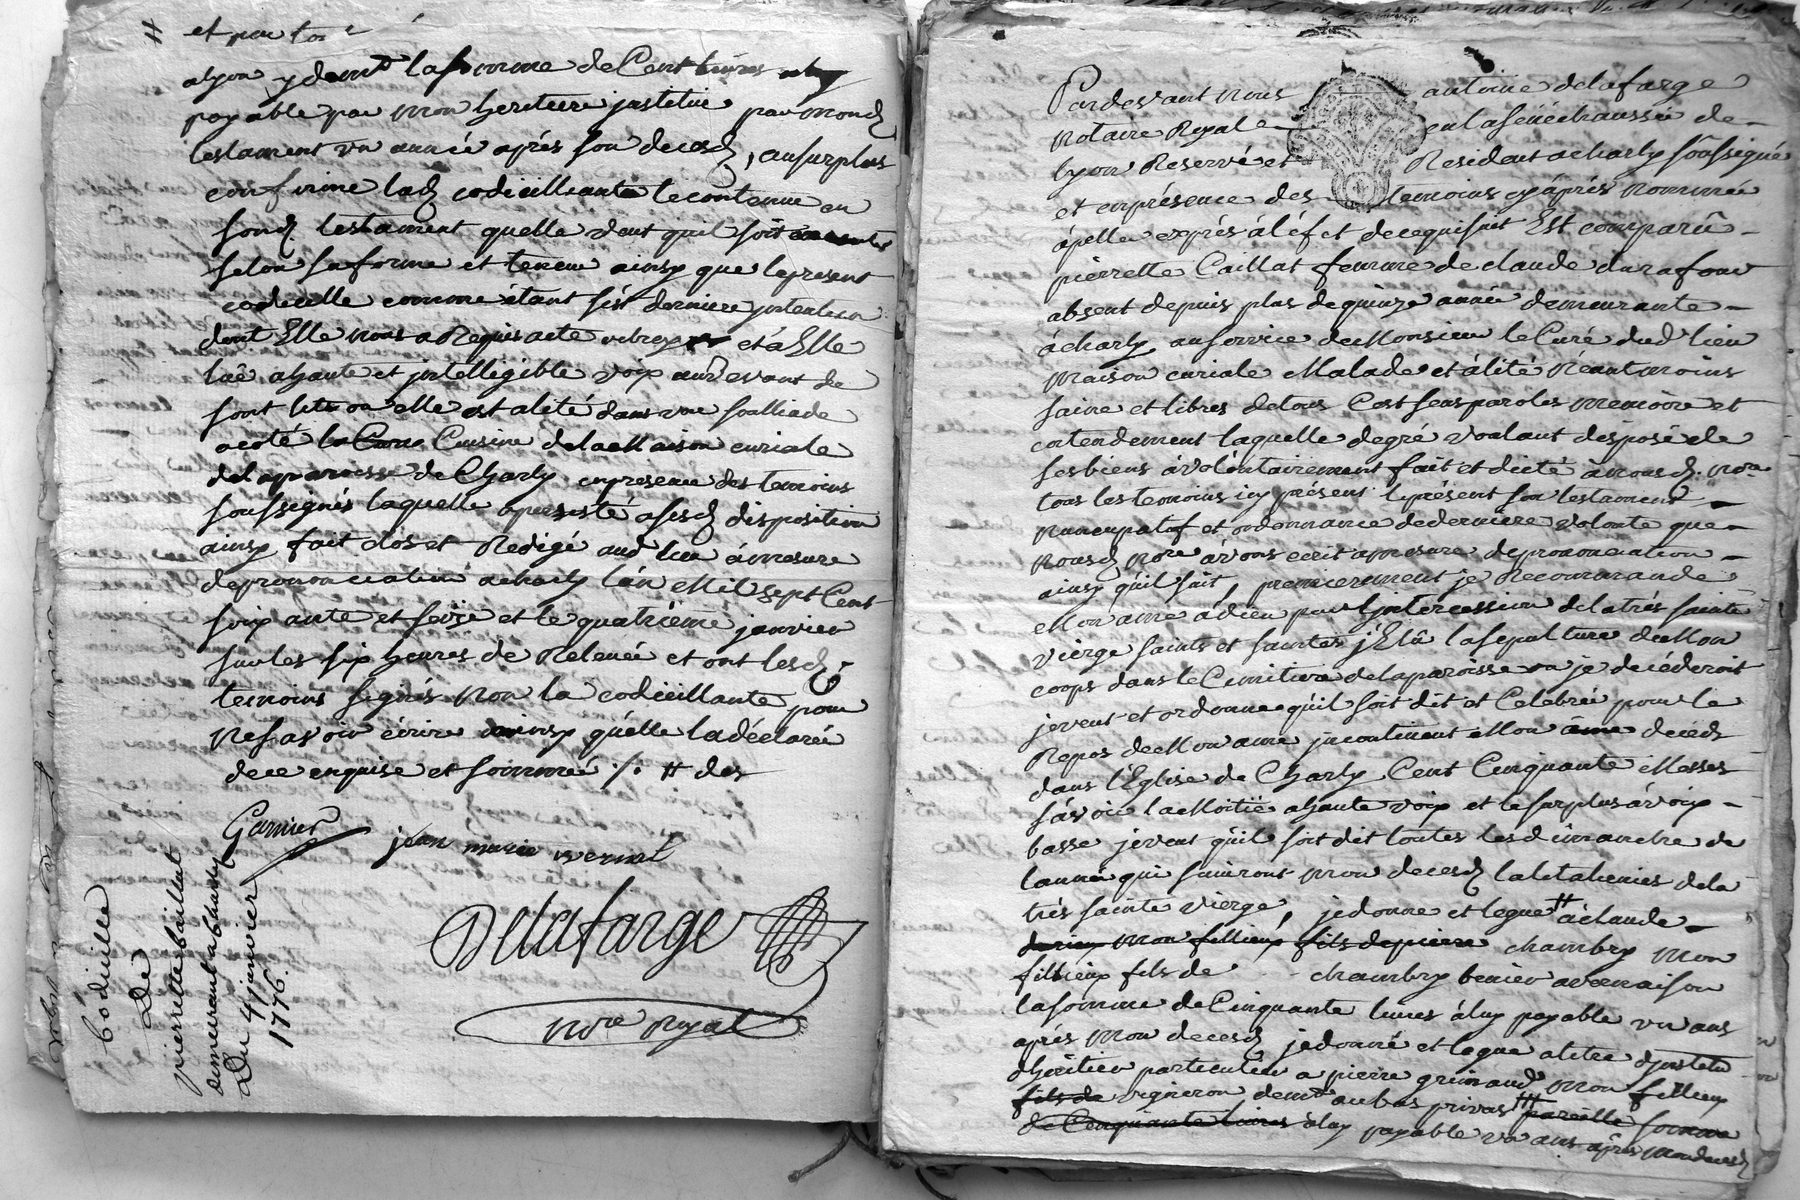 # et pour to
alyon y demt la somme de Cent livres
payable par mon heritiere jnstituée par mond
testament vn année aprés son deced, ausurplus
confirme lad codicilliante le contenu en
sond testament quelle veut quil soit
selon sa forme et teneur ainsy que lepresent
codicille comme êtant sés derniere jntention
dont Elle nous a Requis acte octroyé et á Elle
luê ahaute et jntelligible voix audevant de
sont lit ou elle est alité dans vne
acoté la Cuisine delaMaison curiale
delaparoisse de Charly enpresence des temoins
soussignés laquelle apersisté asesd disposition
ainsy fait clos et Redigé aud lieu ámesure
deprononciation acharly l'an Mil sept Cent
soixante et seize et le quatriéme janvier
surles six heures de Relevée et ont lesd
temoins signés non la codicillante pour
ne savoir écrire ainsy qu'elle ladéclarée
dece enquise et sommée ./. # des
Garnier
jean marie
Delafarge
nore Royal
Codicille
De
pierrette Caillat
demeurant a Charly
Du 4 janvier
1776.
Pardevant nous antoine delafarge
notaire Royal en lasenéchaussée de
lyon Reservé et Resident acharly soussigné
et enprésence des temoins cy áprés nommée
ápellé exprés áléfet decequisuit Est comparû
pierrette Caillat femme de claude durafour
absent depuis plus dequinze année demeurante
ácharly auservice deMonsieur le Curé dud lieu
Maison curiale Malade et álité néantmoins
saine et libres detous Cest sens paroles memoire et
entendement laquelle degré voulant disposé de
ses biens ávolontairement fait et dicté ánousd. nore
tous les temoins icy présent leprésent son testament
nuncupatif et ordonnance dederniere volonté que
nousd nore ávons ecrit amesure deprononciation
ainsy quil suit, premierement je Recommande
Mon ame ádieu par l'jntercession delatrés sainte
vierge saints et saintes j'Elû lasepulture deMon
corps dans leCimitiere delaparoisse ou je decéderoit
jeveut et ordonne qu'il soit dit et Celebrée pour le
Repos deMon ame jncontinent áMon âme decéds
dans l'Eglise de Charly Cent Cinquante Messes
sávoir laMoitié ahaute voix et lesurplus ávoix
basse jeveut qu'il soit dit toutes les dimanche de
lannée qui suivront mon decesd laletahenies dela
trés sainte vierge, jedonne et legue # áclaude
mon fillieux fils depierre chambry mon
fillieux fils de chambry benier avernaison
lasomme deCinquante livres áluy payable vn ans
aprés mon decesd jedonne et legue atitre djnstitu
dhéritier particulier a pierre grimaud mon fillieux
fils de vigneron demt aubas privas ### pareille somme
de Cinquante livres áluy payable vn ans áprés mondecesd